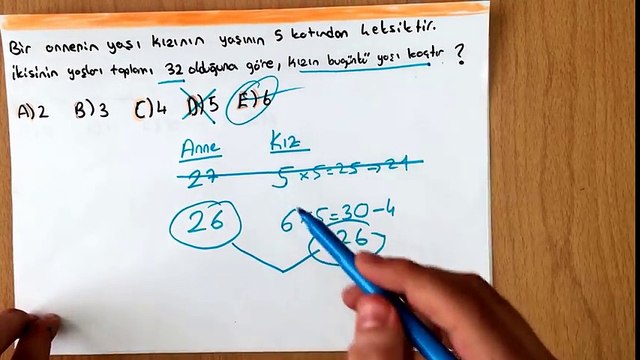 Bir annenin yaşı kızının yaşının 5 katından 4 eksiktir.
ikisinin yaşları toplamı 32 olduğuna göre, kızın bugünkü yaşı kaçtır ?
A)2 B)3 C)4 D)5 E)6
Anne Kız
27 5×5=25→21
26 6×5=30-4
26